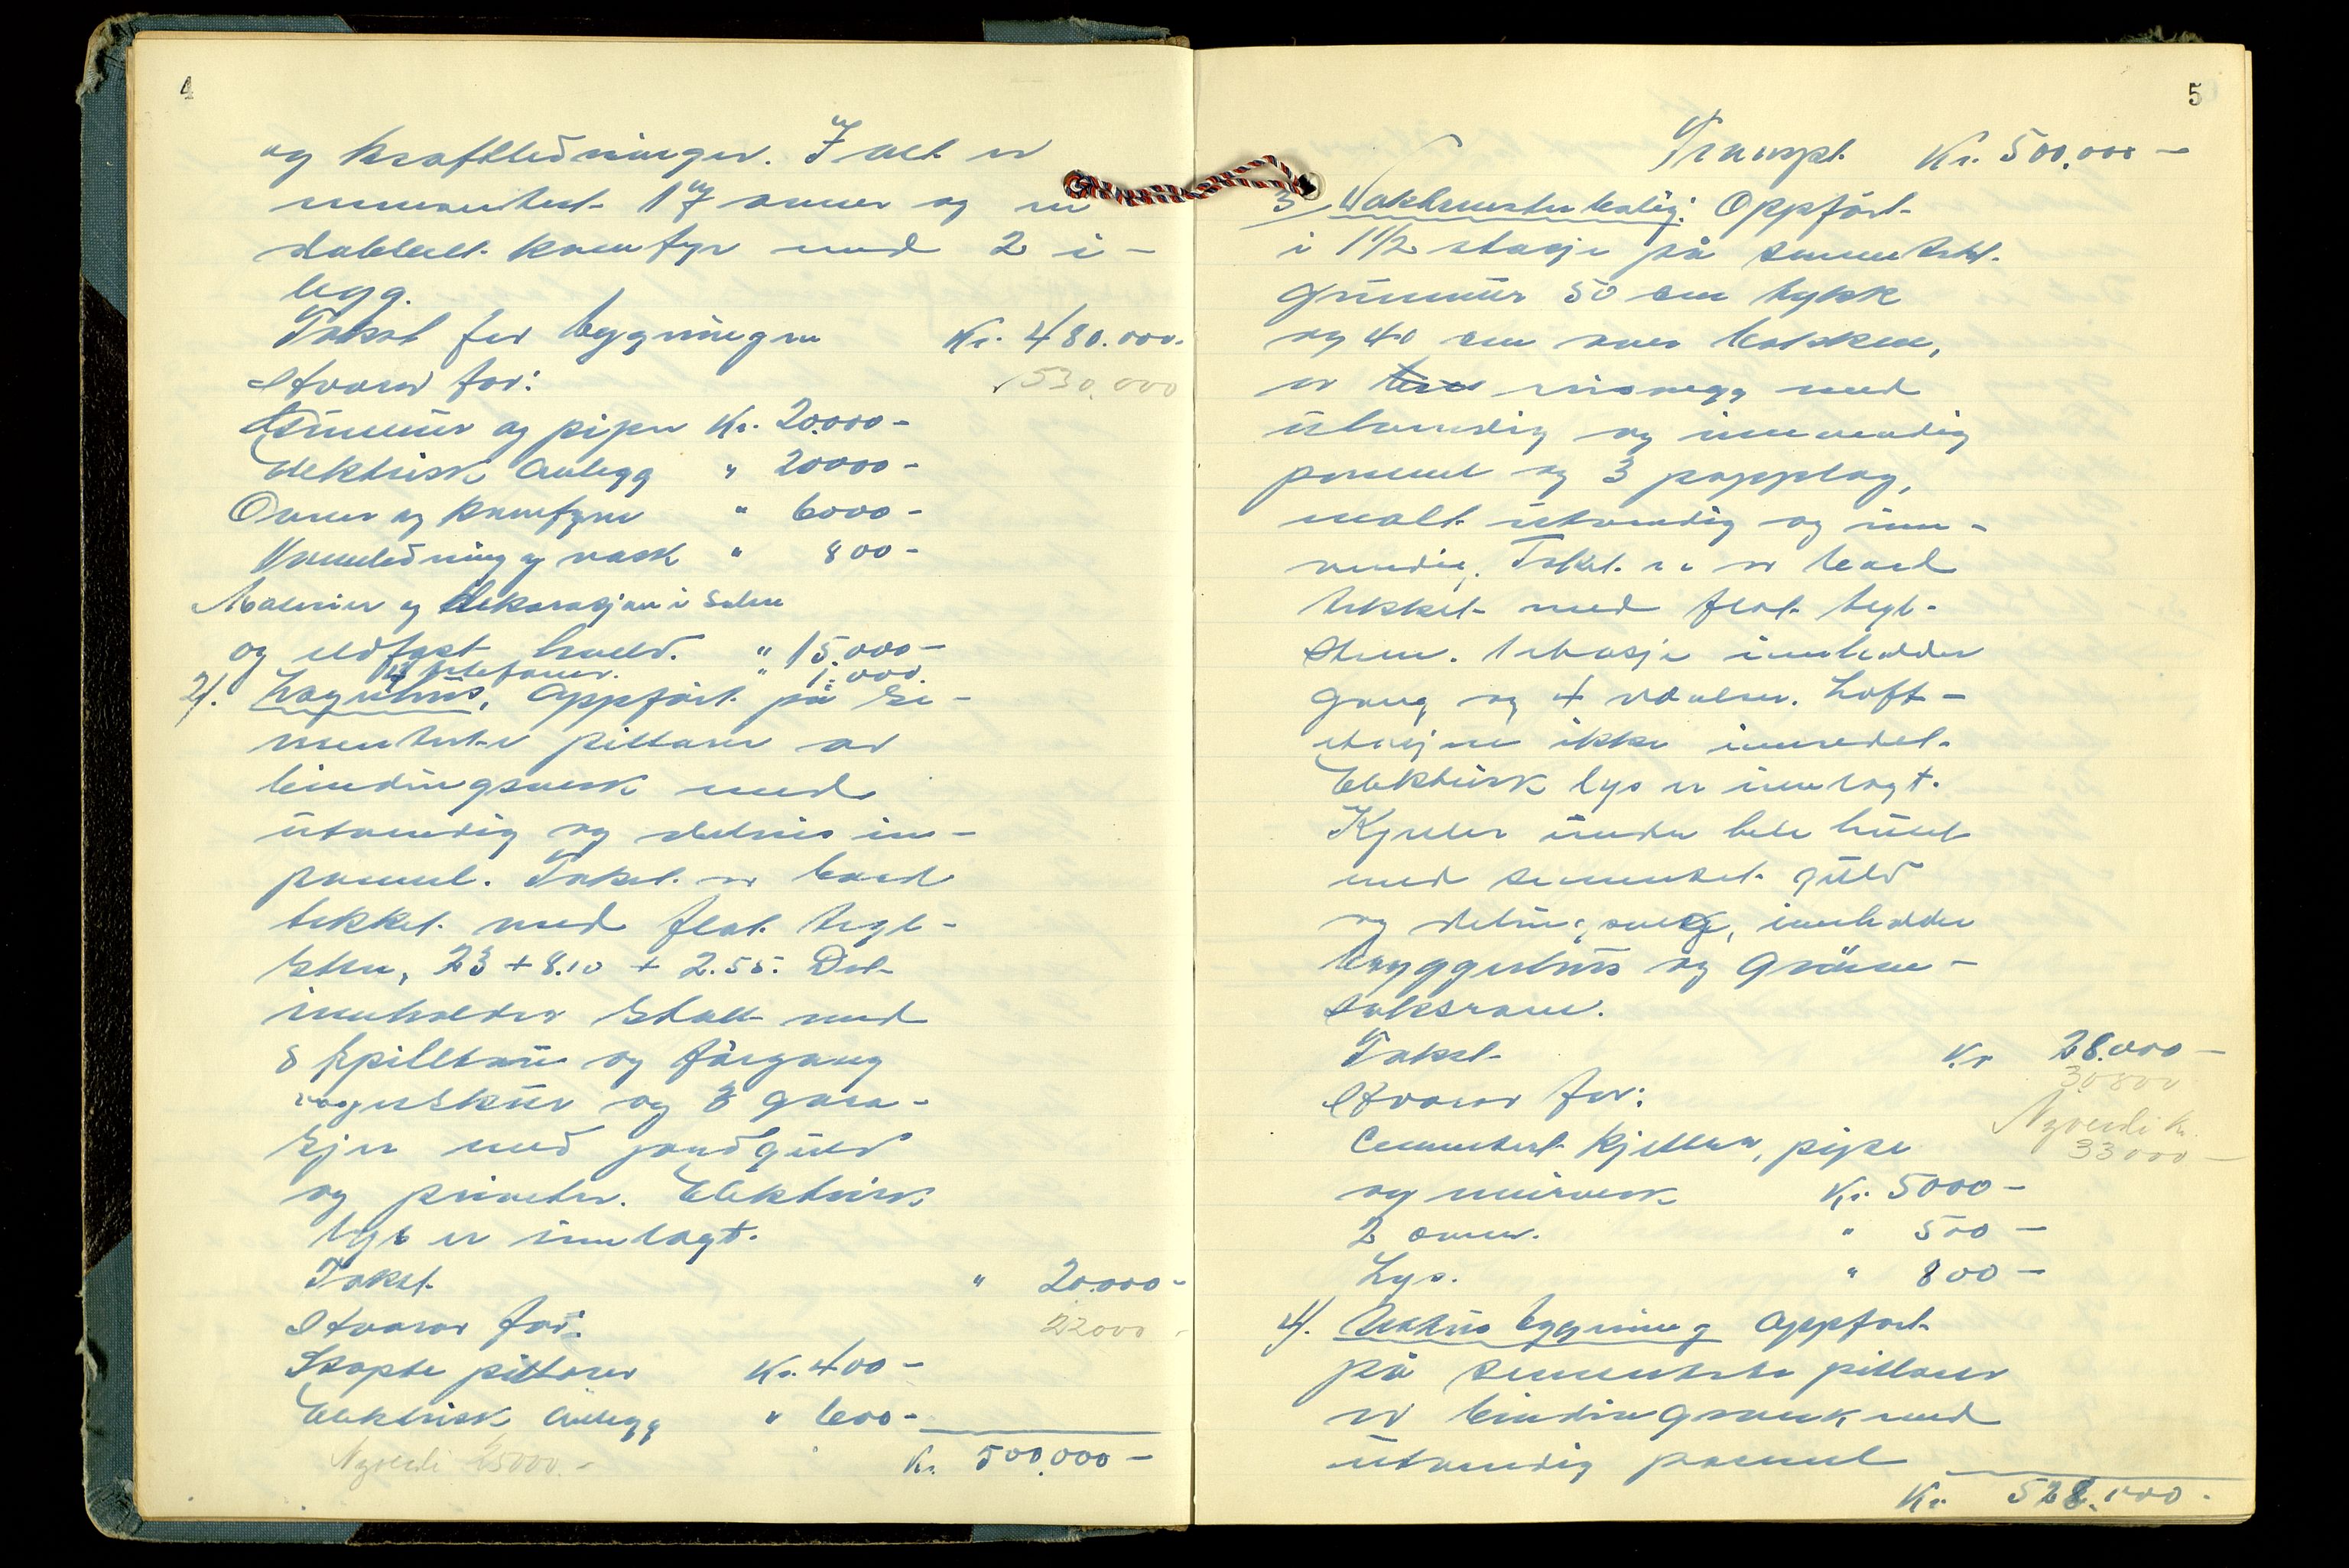 4
og kraftledninger. I alt er
montert 17 ovner og en
dobbelt komfyr med 2 i-
legg.
Takst for bygningen Kr. 480.000.
530.000
Herav for:
Grunnmur og piper Kr. 20.000-
Elektrisk anlegg " 20000-
Ovner og komfyrer " 6000-
Vannledning og vask " 800-
Malerier og dekorasjon i salen
og ildfast hvelv. " 15.000-
4 telefoner. " 1.000.
2/. Lagerhus, oppført på se-
menterte pillarer av
bindingsverk med
utvendig og delvis inv.
panel. Taket er bord
tekket med flat tegl-
sten, 23 + 8.10 + 2.55. Det
inneholder stall med
8 spilltau og forgang
vognskur og 3 gara-
sjer med jordgulv
og priveter. Elektrisk
lys er innlagt.
Takst " 20.000-
Herav for: 22000-
Støpte pillarer Kr. 400-
Elektrisk anlegg " 600-
Nyverdi 25000.-
Kr. 500.000-
5
Transport Kr. 500.000-
3/ Vaktmesterbolig: Oppført
i 1 1/2 etasje på sementert
grunnmur 50 cm tykk
og 40 cm over bakken,
av reisvegg med
utvendig og innvendig
panel og 3 papplag,
malt utvendig og inn-
vendig. Taket er av bord
tekket med flat tegl-
sten. 1 etasje inneholder
gang og 4 værelser. Loft-
etasjen ikke innredet.
Elektrisk lys er innlagt.
Kjeller under hele huset
med sementert gulv
og delingsvegg, inneholder
bryggerhus og grønn-
saksrom.
Takst Kr 28.000-
30800
Herav for:
Nyverdi kr.
33000-
Cementert kjeller, pipe
og murverk Kr. 5000-
2 ovner. " 500-
Lys. " 800-
4/. Uthusbygning oppført
på sementerte pillarer
av bindingsverk med
utvendig panel
Kr. 528.000.